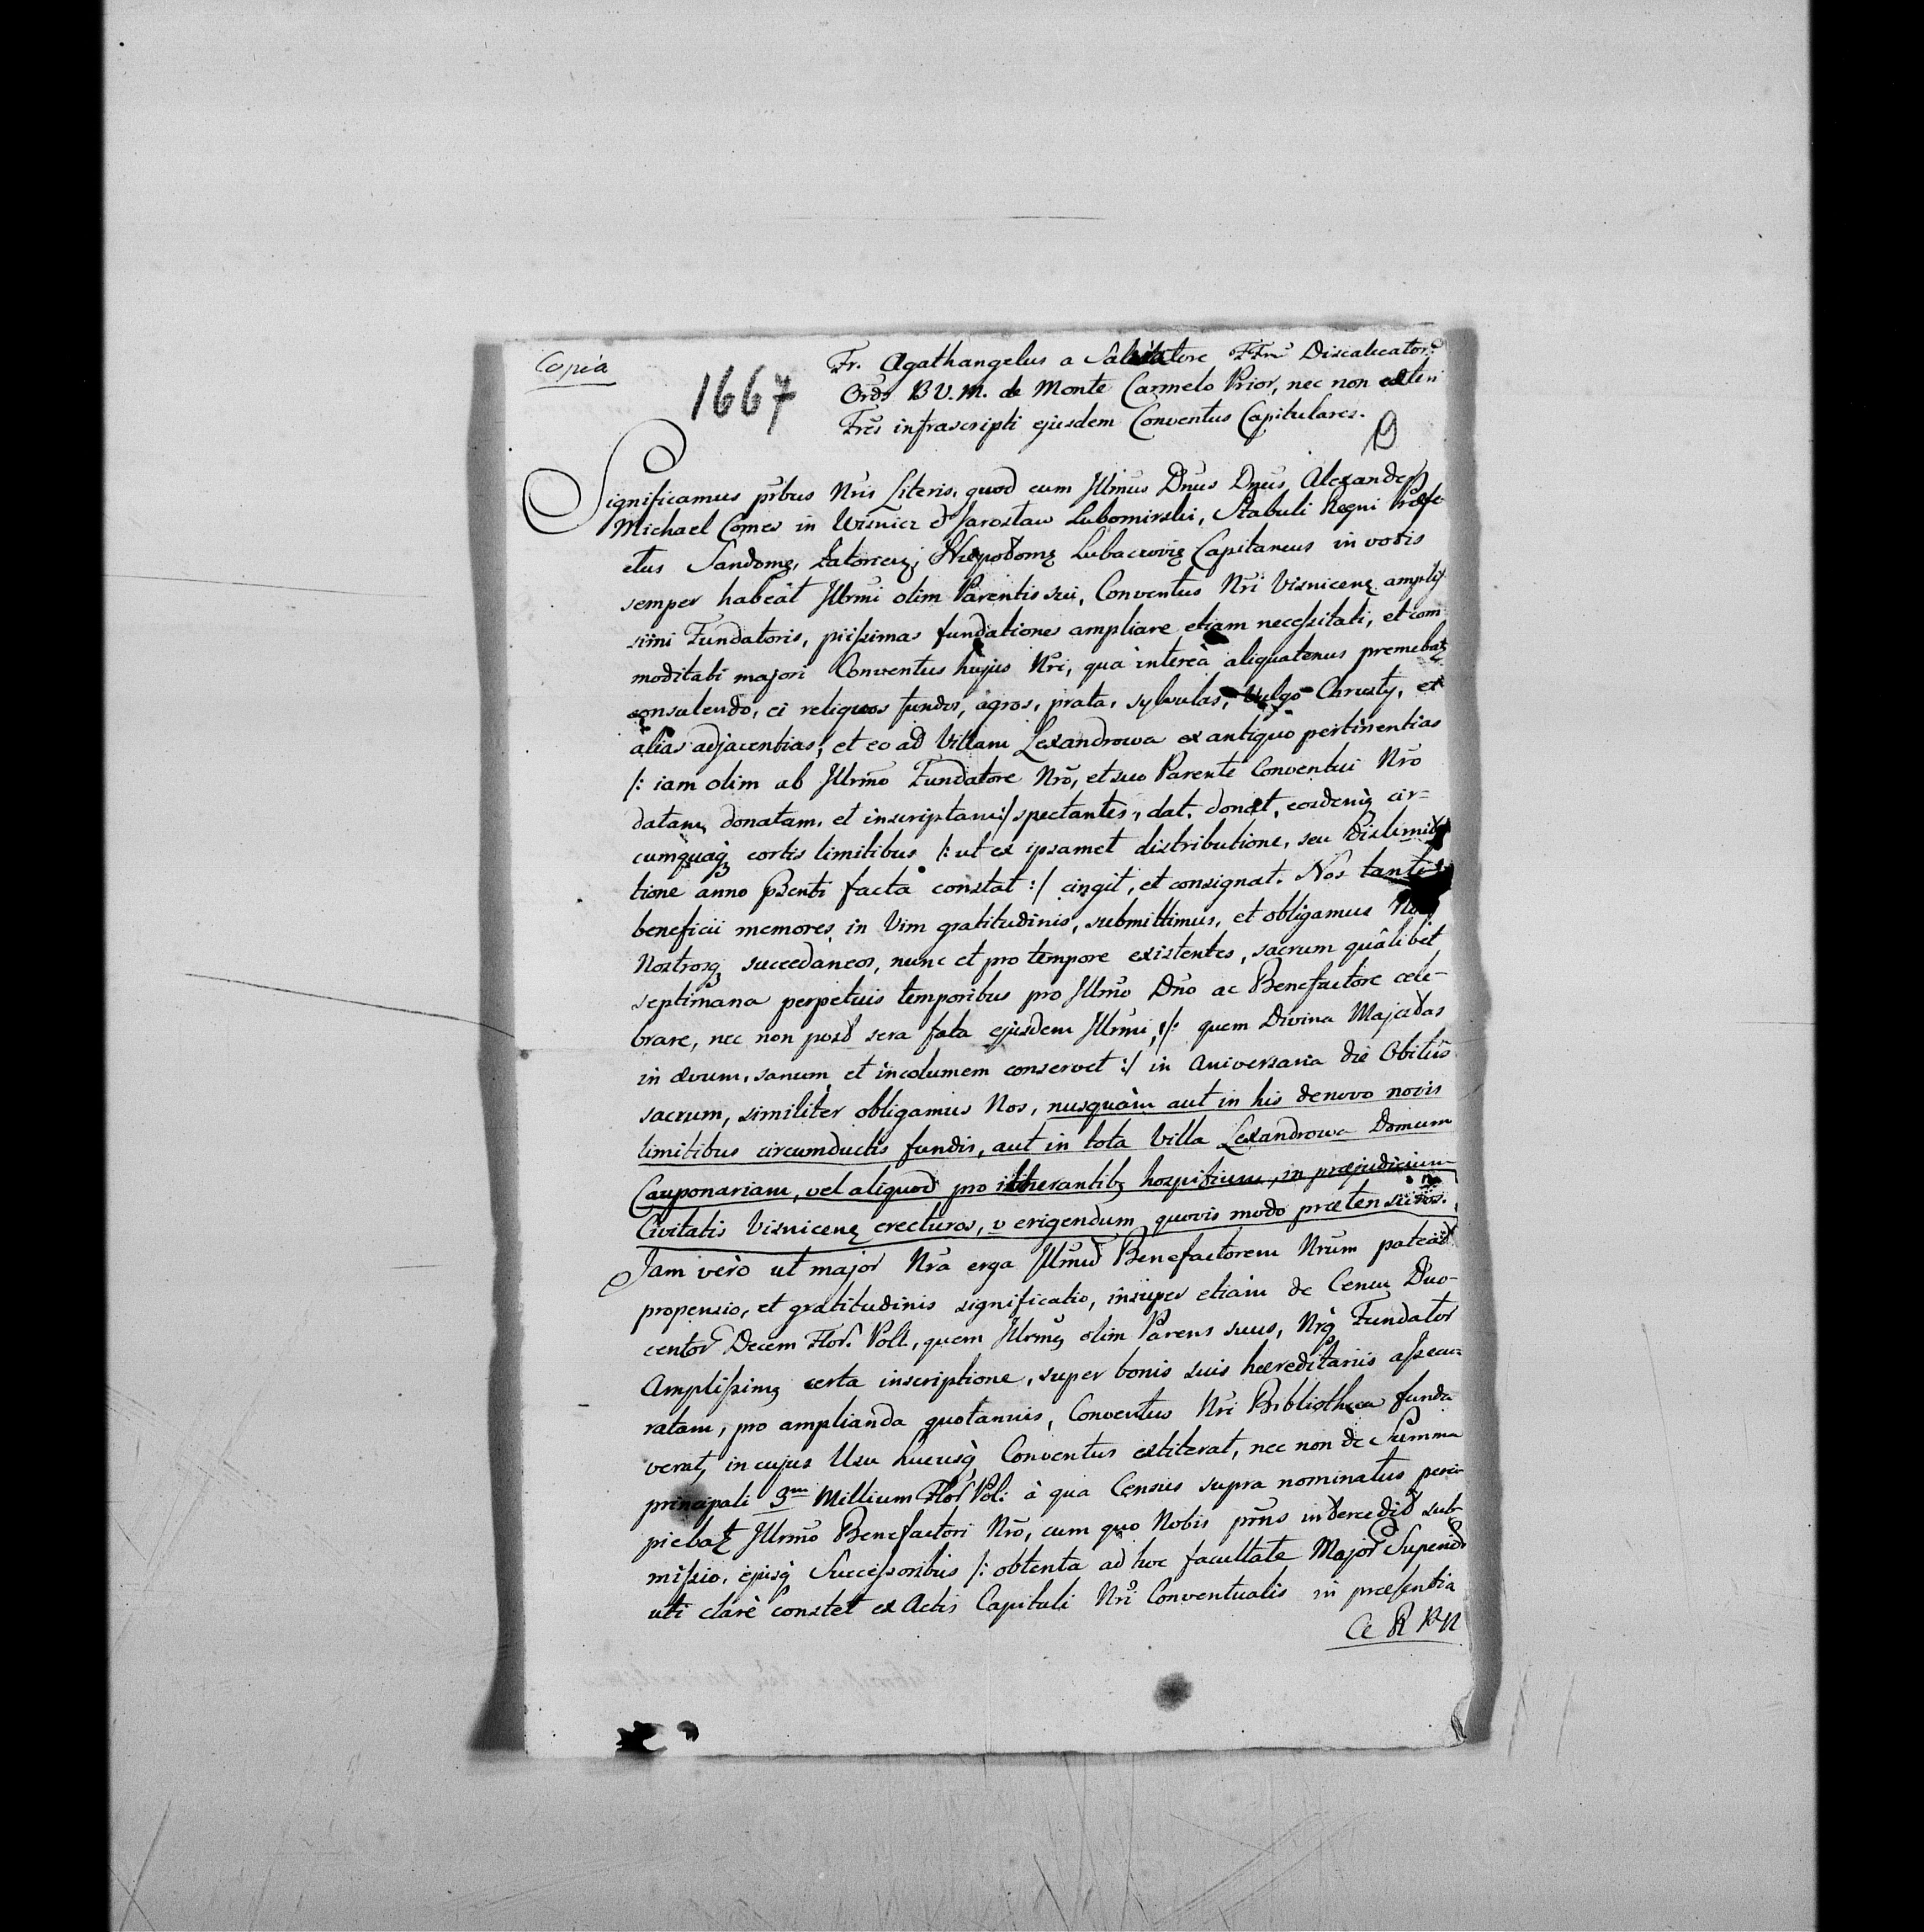 Copia
1667
Fr. Agathangelus a Salvatore FFrũ Discalceator:
Ords B V. M. de Monte Carmelo Prior, nec non cæteri
Frẽs infrascripti ejusdem Conventus Capitulares.
Significamus pñbus Nris Literis, quod cum Illmus Dnus Dnus Alexander
Michael Comes in Wisnicz & Jaroslaw Lubomirski, Stabuli Regni Præfe-
ctus Sandomę, Zatoricę, Niepodomę Lubaczovię Capitaneus in votis
semper habeat Illrmi olim Parentis sui, Conventus Nri Visnicenę amplis-
simi Fundatoris, piissimas fundationes ampliare etiam necessitati, et com
moditati majori Conventus hujus Nri, qua interea aliquatenus premebatʒ
consulendo, ei reliquos fundos, agros, prata, sylvulas, vulgo Chrusty, et
alias adjacentias, et eo ad Villam Lexandrowa ex antiquo pertinentias
/: iam olim ab Illrmo Fundatore Nrõ, et suo Parente Conventui Nrõ
datam, donatam, et inscriptam :/ spectantes, dat, donat, eosdemqʒ cir=
cumquaqʒ certis limitibus /: ut ex ipsamet distributione, seu dislimita
tione anno Psenti facta constat :/ cingit, et consignat. Nos tanti
beneficii memores in Vim gratitudinis, submittimus, et obligamus Nos
Nostrosqʒ succedaneos, nunc et pro tempore existentes, sacrum quâlibet
septimana perpetuis temporibus pro Illrmo Dño ac Benefactore cele-
brare, nec non post sera fata ejusdem Illrmi, /: quem Divina Majestas
in ævum, sanum et incolumem conservet :/ in aniversaria die Obitus
sacrum, similiter obligamus Nos, nusquàm aut in his denovo novis
limitibus circumductis fundis, aut in tota Villa Lexandrowa Domum
Cauponariam, vel aliquod pro itinerantibʒ hospitium, in præjudicium
Civitatis Visnicenę erecturos, v erigendum quovis modo prætensuros.
Jam verò ut major Nra erga Illmũ Benefactorem Nrũm pateat
propensio, et gratitudinis significatio, insuper etiam de Censu Duo-
centor Decem Flor. Poll, quem Illrmʒ olim Parens suus, Nrqʒ Fundator
Amplissimʒ certa inscriptione, super bonis suis hæreditariis assecu=
ratam, pro amplianda quotannis, Conventus Nri Bibliotheca funda
verat, in cujus Usu hucusqʒ Conventus extiterat, nec non de Summa
principali 3m Millium Flor Pol: à qua Census supra nominatus perci-
piebatʒ Illrmo Benefactori Nrõ, cum quo Nobis prñs intercedit sub-
missio, ejusqʒ Successoribus /: obtenta ad hoc facultate Major Superior
uti clarè constet ex Actis Capituli Nri Conventualis in præsentia